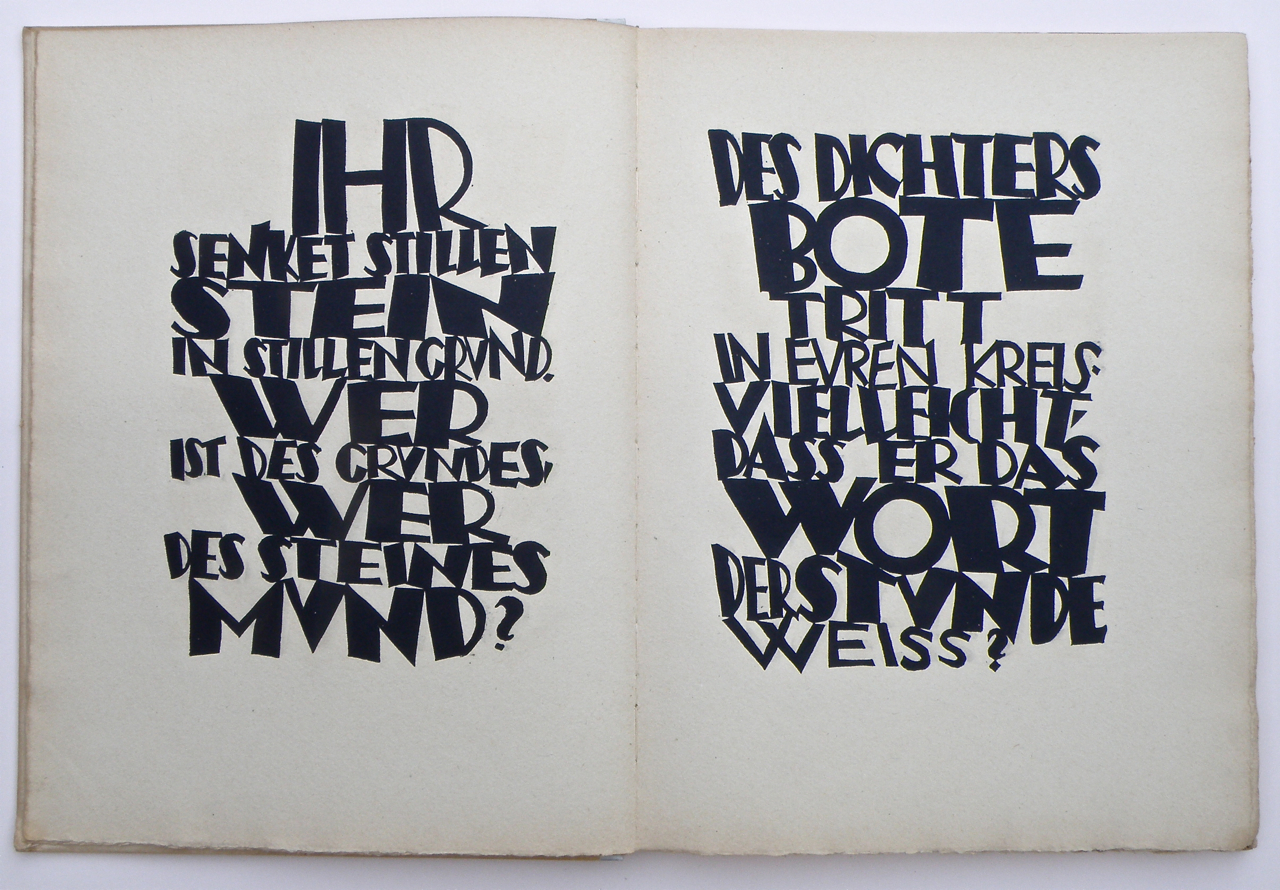 IHR
SENKET STILLEN
STEIN
IN STILLEN GRVND.
WER
IST DES GRVNDES,
WER
DES STEINES
MVND?
DES DICHTERS
BOTE
TRITT
IN EVREN KREIS:
VIELLEICHT,
DASS ER DAS
WORT
DER STVNDE
WEISS?